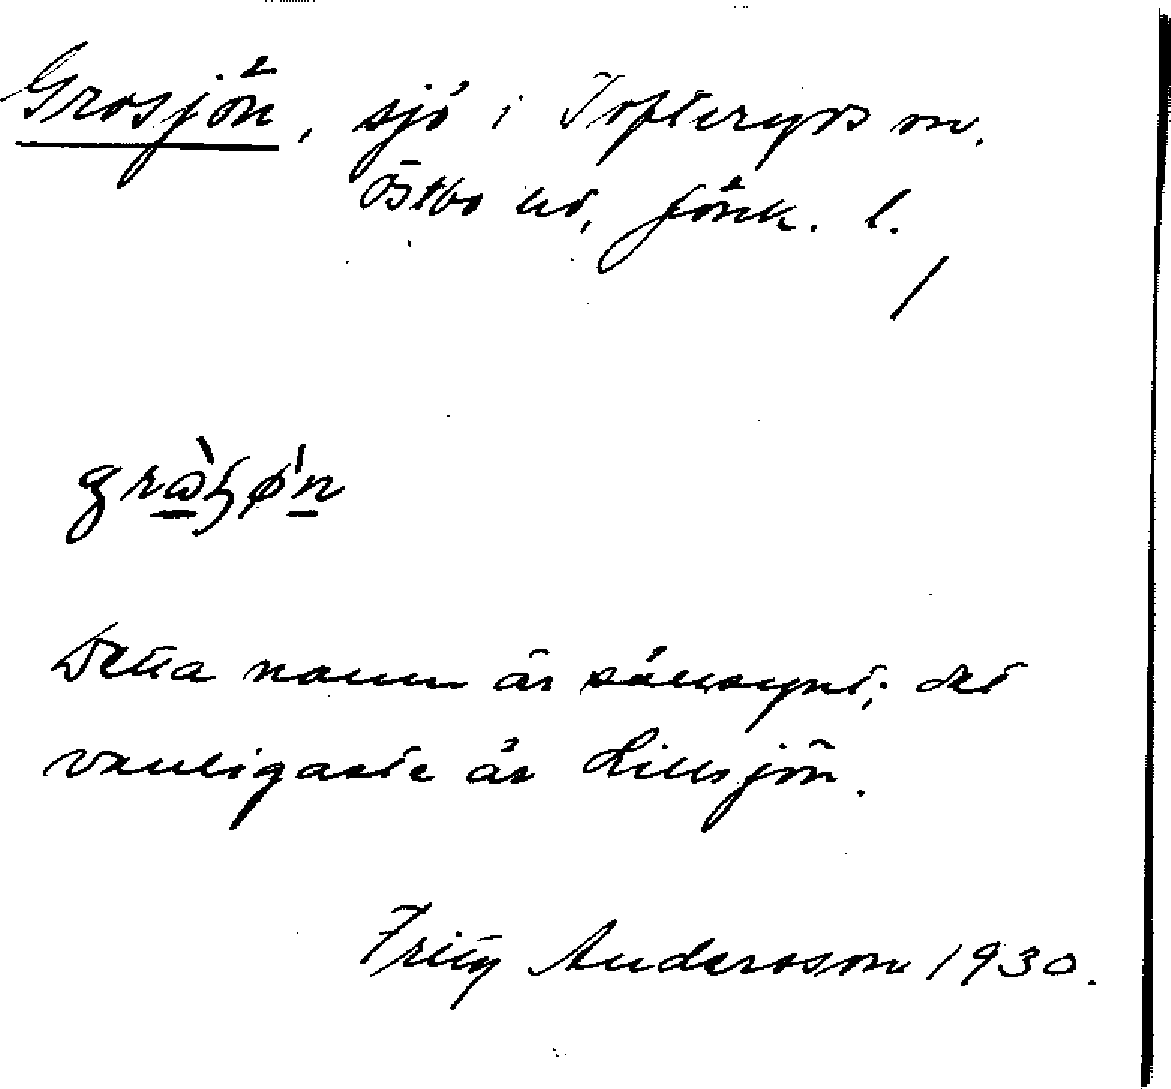 Grosjön, sjö i Tofteryds sn.
Östbo hd, Jönk. l.
Detta namn är sällsynt; det
vanligaste är Lillsjön.
Fritz Andersson 1930.